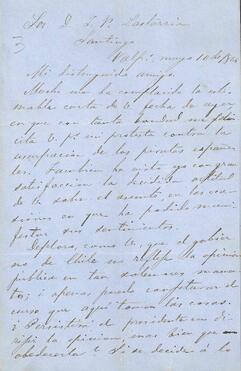 Sor D. J. V. Lastarria
Santiago
Valpo, mayo 10 de 1864
Mi distinguido amigo.
Mucho me ha complacido la esti-
mable carta de V. fecha de ayer
en que con tanta bondad me feli-
cita V. p.r mi protesta contra la
usurpacion de los piratas españo-
les. Tambien he visto ya con gran
satisfaccion la decidida actitud
de V. sobre el asunto, en las oca-
siones en que ha podido mani-
festar sus sentimientos.
Deploro, como V., que el gobier-
no de Chile no refleje la opinion
publica en tan solemnes momen-
tos; i apenas puedo conjeturar el
curso que aqui toman las cosas.
¿Persistirá el presidente en di-
rijir la opinion, mas bien que
obedecerla? ¿Se decide á lo